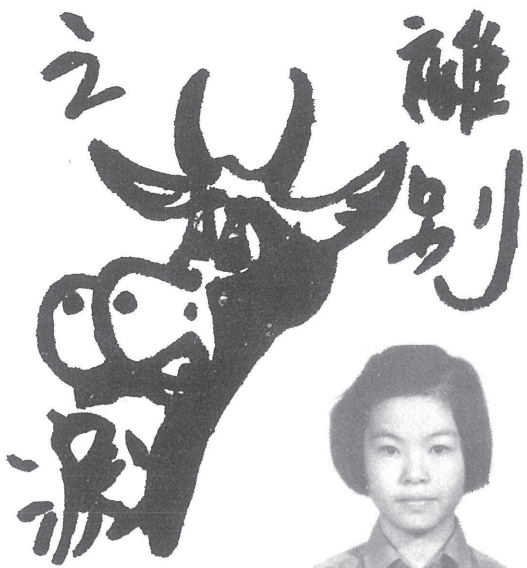 離別
之
淚